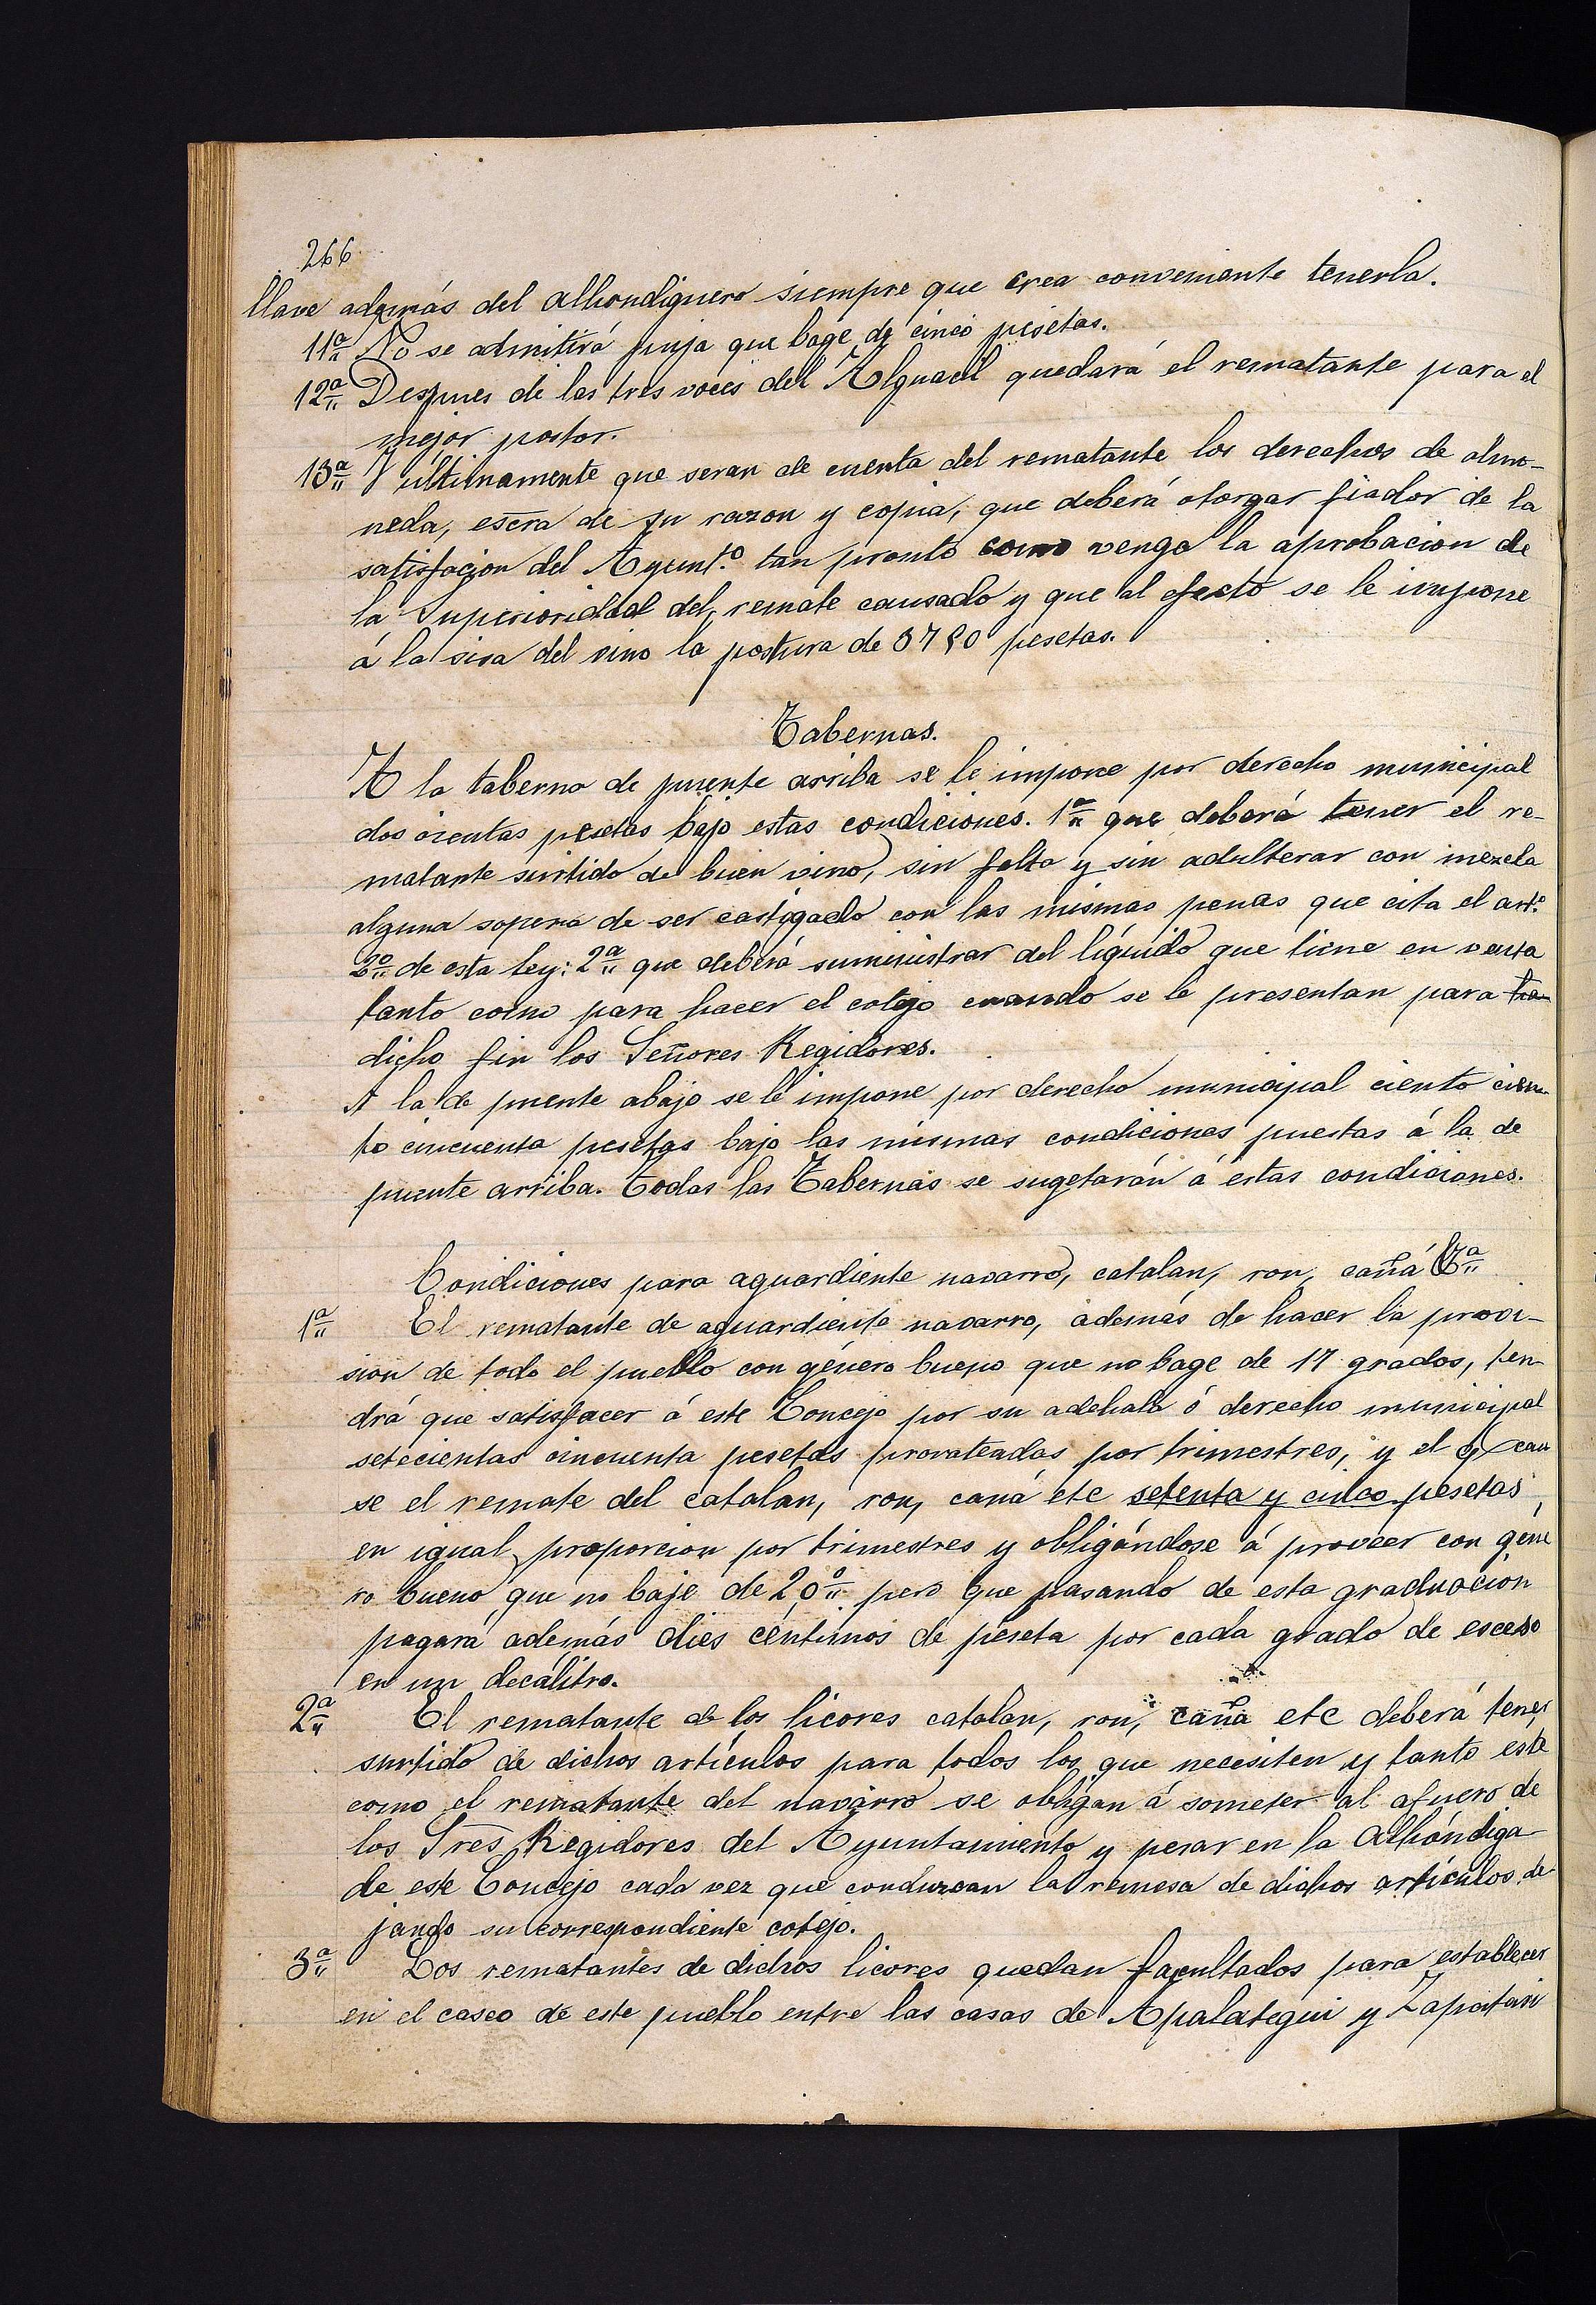 266
llave además del alhondiguero siempre que crea conveniente tenerla.
11ª No se admitirá puja que bage de cinco pesetas.
12ª Despues de las tres voces del Alguacil quedará el rematante para el
mejor postor.
13ª Y últimamente que seran de cuenta del rematante los derechos de almo-
neda, escra de su razon y copia, que deberá otorgar fiador de la
satisfacion del Ayunt.º tan pronto como venga la aprobacion de
la Superioridad del remate causado y que al efecto se le impone
á la sisa del vino la postura de pesetas.
Tabernas.
A la taberna de puente arriba se le impone por derecho municipal
dos cientas pesetas bajo estas condiciones. 1ª que deberá tener el re-
matante surtido de buen vino, sin falta y sin adulterar con mezcla
alguna sopena de ser castigado con las mismas penas que cita el artº
de esta ley: 2ª que deberá suministrar del líquido que tiene en venta
tanto como para hacer el cotejo cuando se le presentan para
dicho fin los Señores Regidores.
A la de puente abajo se le impone por derecho municipal ciento cien-
to cincuenta pesetas bajo las mismas condiciones puestas á la de
puente arriba. Todas las Tabernas se sugetarán á estas condiciones.
Condiciones para aguardiente navarro, catalan, ron, caña
1ª El rematante de aguardiente navarro, además de hacer la provi-
sion de todo el pueblo con género bueno que no bage de 17 grados, ten-
drá que satisfacer á este Concejo por su adehala ó derecho municipal
setecientas cincuenta pesetas prorateadas por trimestres, y el q cau
se el remate del catalan, ron, caná etc setenta y cinco pesetas,
en igual proporcion por trimestres y obligándose á proveer con géne
ro bueno que no baje de 20º pero que pasando de esta graduacion
pagará además dies céntimos de peseta por cada grado de esceso
en un decálitro.
2ª El rematante de los licores catalan, ron, caña etc deberá tener
surtido de dichos artículos para todos los que necesiten y tanto este
como el rematante del navarro se obligan á someter al afuero de
los Sres Regidores del Ayuntamiento y pesar en la Alhóndiga
de este Concejo cada vez que conduzcan la remesa de dichos artículos de
jando su correspondiente cotejo.
3ª Los rematantes de dichos licores quedan facultados para establecer
en el casco de este pueblo entre las casas de Apalategui y Zapatari